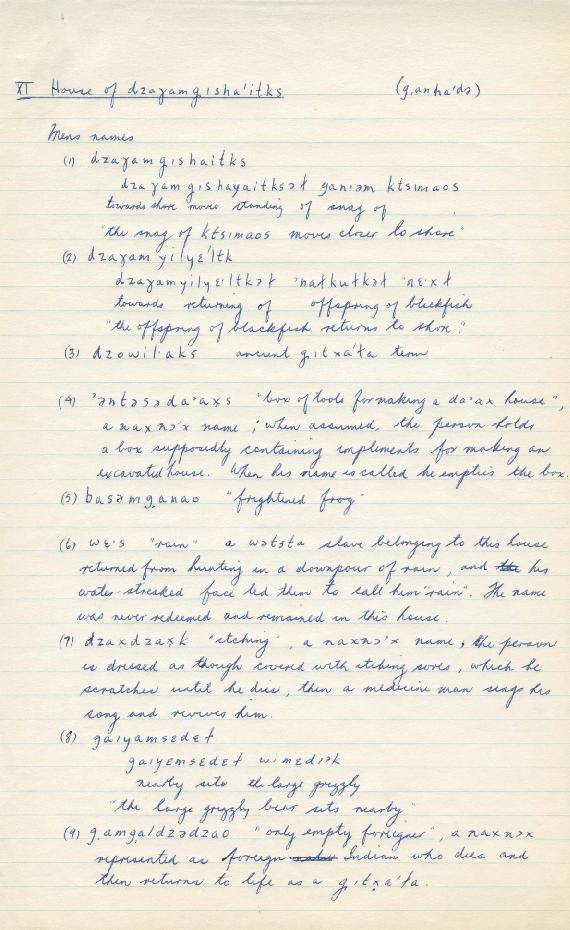 XI House of dzaɣamgısha'itks (g.anha'də)
Mens names
(1) dzaɣamgıshaitks
dzaɣamgıshaɣaitksəł ganıəm ktsımaos
towards shore moves standing of snag of
"the snag of ktsımaos moves closer to shore"
(2) dzaɣamyilyɛ'ltk
dzaɣamyilyɛ'ltkəł 'nałkutkəł 'nɛ·xł
towards returning of offspring of blackfish
"the offspring of blackfish returns to shore."
(3) dzowil·aks ancient gıtxa'ła term
(4) 'əntəsəda'axs "box of tools for making a da'ax house",
a naxnɔ'x name; when assumed, the person holds
a box supposedly containing implements for making an
excavated house. When his name is called he empties the box.
(5) basəmganao "frightened frog"
(6) wɛ·s "rain" a wətsta slave belonging to this house
returned from hunting in a downpour of rain, and his
water-streaked face led them to call him "rain". The name
was never redeemed and remained in this house.
(7) dzaxdzaxk "itching", a naxnɔ'x name, the person
is dressed as though covered with itching sores, which he
scratches until he dies, then a medicine man sings his
song and revives him.
(8) gaıyamsɛdɛł
gaıyɛmsɛdɛł wımɛdıək
nearby sits the large grizzly
"the large grizzly bear sits nearby"
(9) g.amga/dzədzao "only empty foreigner", a naxnɔx
represented as foreign Indian who dies and
then returns to life as a gıtxa'ła.